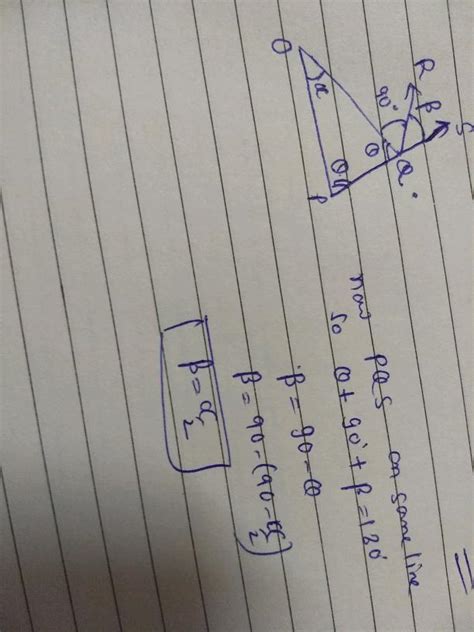 O
α
R
90°
β
S
θ
Q
θ
P
now PQS on same line
so θ + 90° + β = 180°
β = 90 - θ
β = 90 - (90 - α/2)
β = α/2